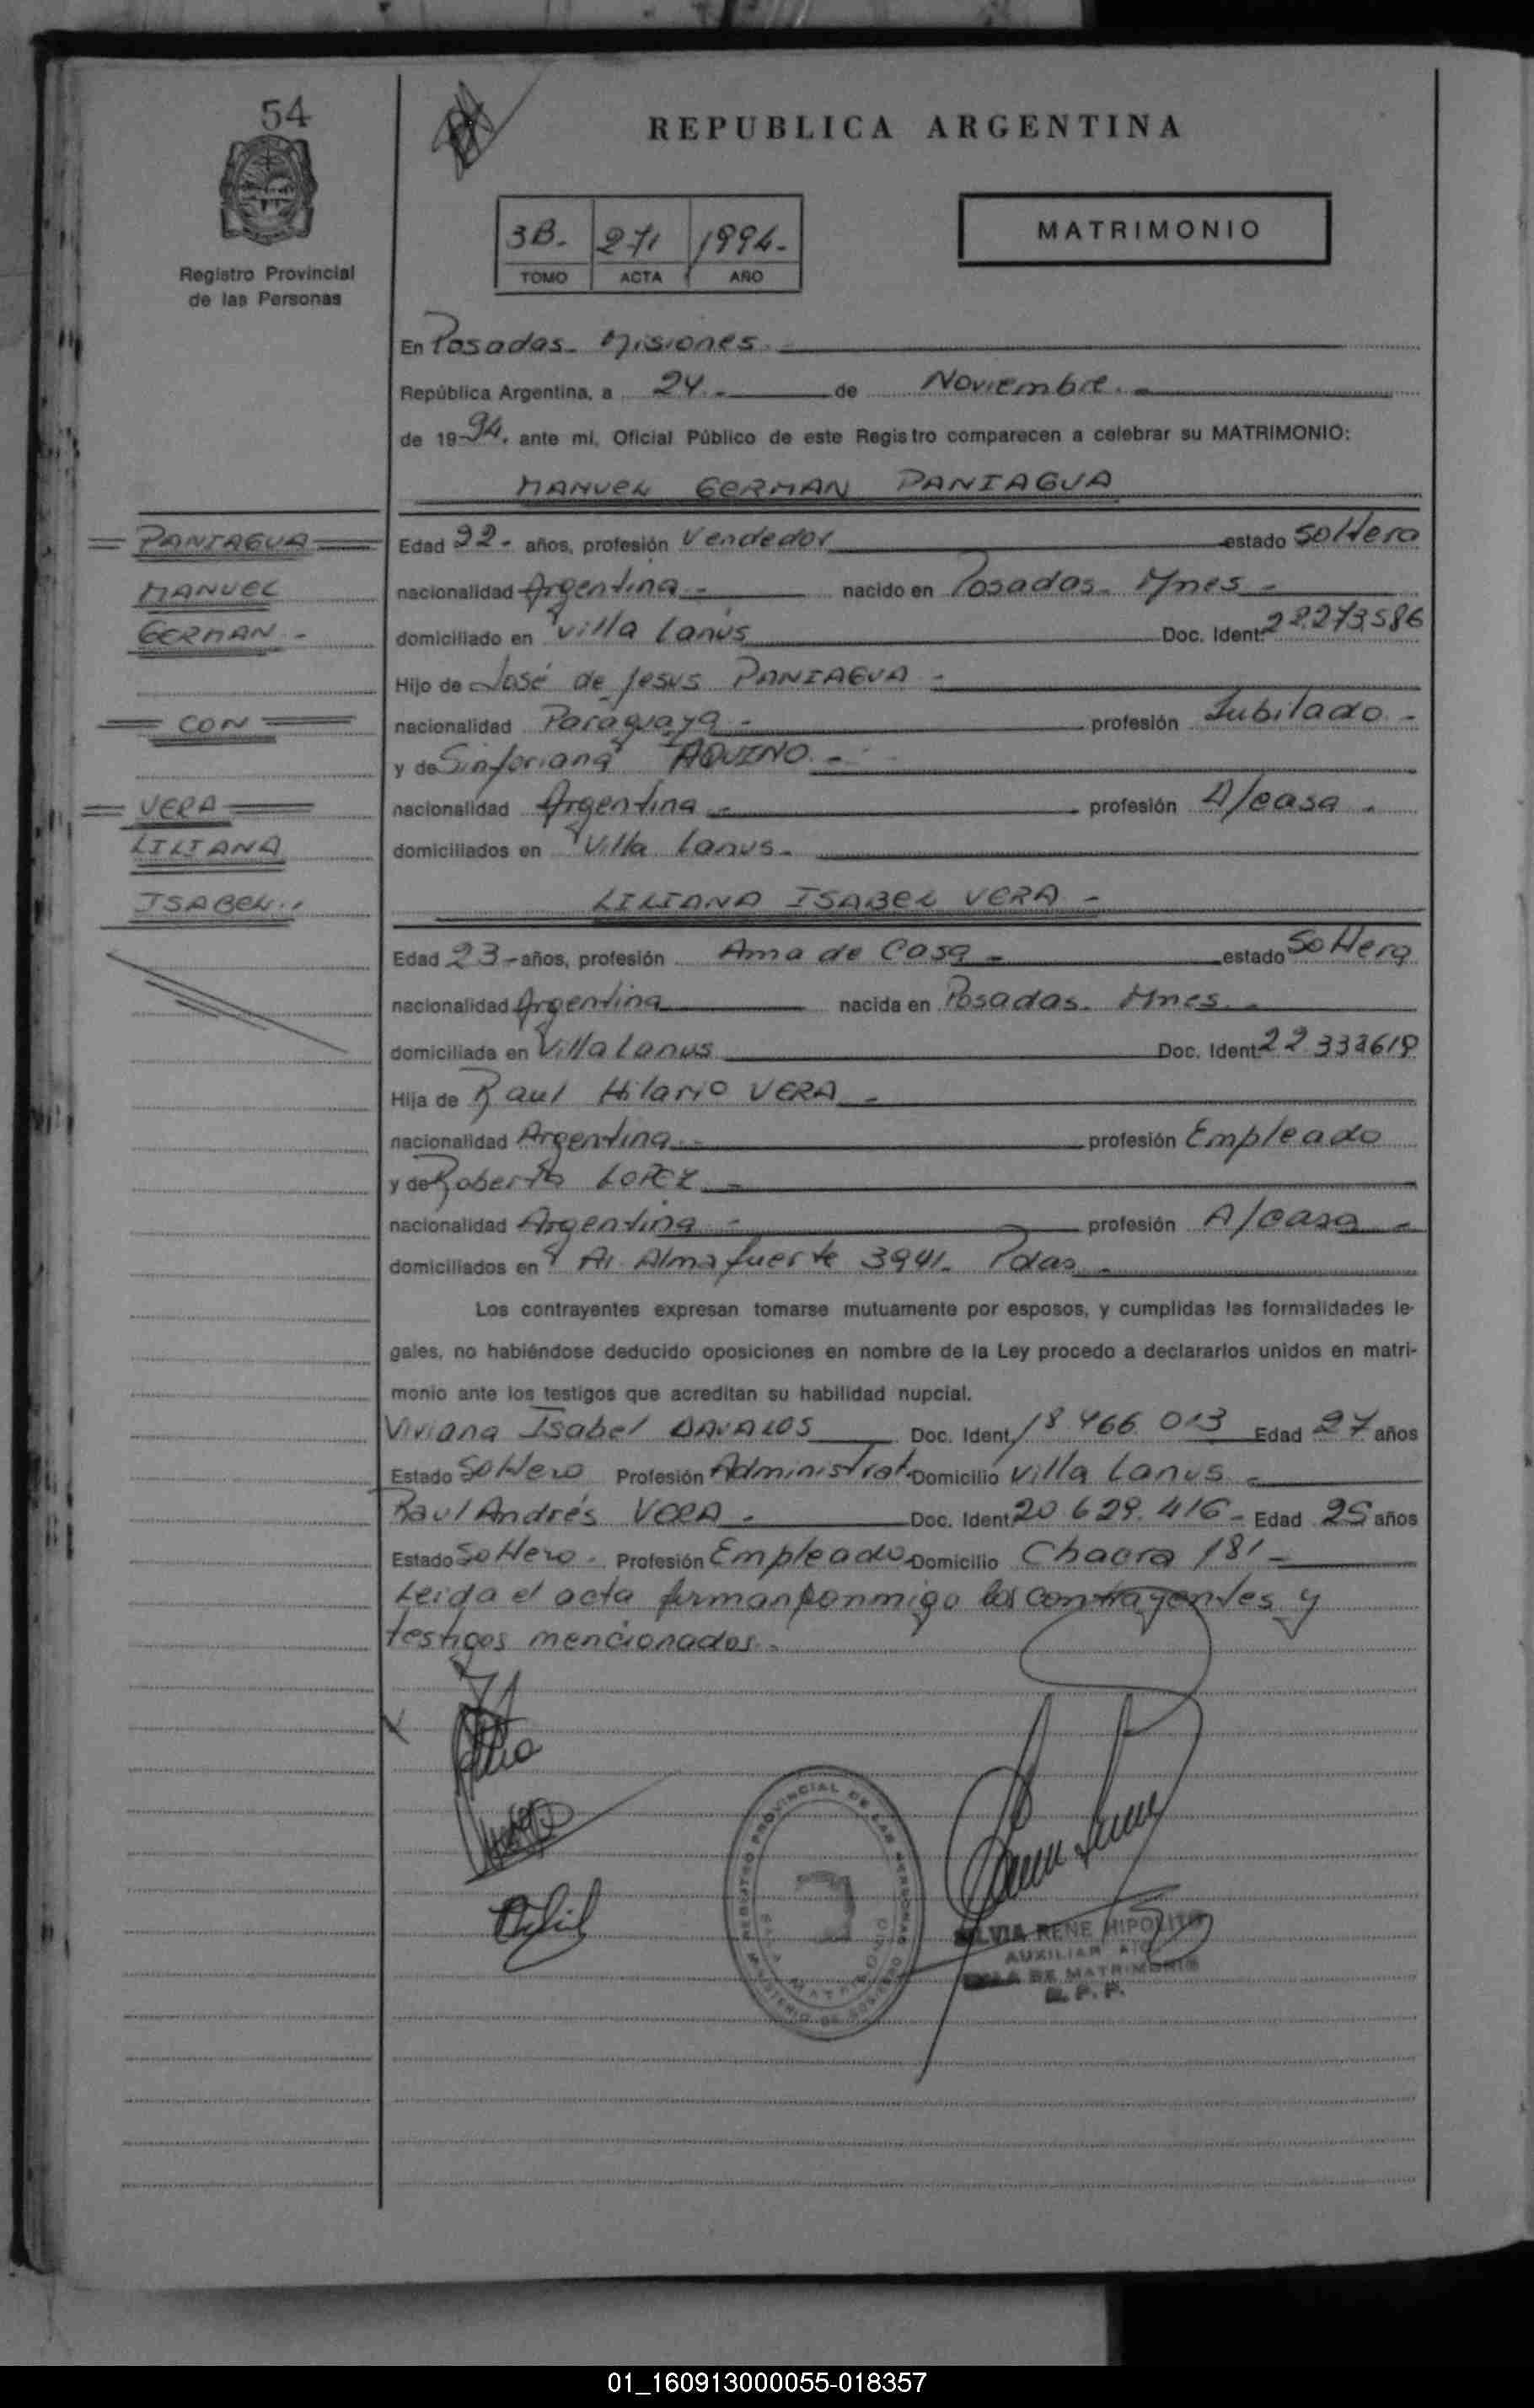 54
REPUBLICA ARGENTINA
3B. 271 1994.-
TOMO ACTA AÑO
MATRIMONIO
Registro Provincial
de las Personas
En Posadas. Misiones.
República Argentina, a 24.- de Noviembre.-
de 1994. ante mi, Oficial Público de este Registro comparecen a celebrar su MATRIMONIO:
MANUEL GERMAN PANIAGUA
PANIAGUA
MANUEL
GERMAN.-
CON
VERA
LILIANA
ISABEL.-
Edad 22- años, profesión Vendedor estado Soltero
nacionalidad Argentina.- nacido en Posadas. Mnes.-
domiciliado en Villa Lanús Doc. Ident. 22.273.586
Hijo de José de Jesus PANIAGUA.-
nacionalidad Paraguaya.- profesión Jubilado.-
y de Sinforiana AQUINO.-
nacionalidad Argentina.- profesión A/casa.
domiciliados en Villa Lanus.-
LILIANA ISABEL VERA.-
Edad 23- años, profesión Ama de Casa.- estado Soltera
nacionalidad Argentina nacida en Posadas. Mnes.-
domiciliada en Villa Lanus Doc. Ident. 22.333619
Hija de Raul Hilario VERA.-
nacionalidad Argentina.- profesión Empleado
y de Roberta LOPEZ.-
nacionalidad Argentina.- profesión A/casa.-
domiciliados en Av. Almafuerte 3941. Pdas.-
Los contrayentes expresan tomarse mutuamente por esposos, y cumplidas las formalidades le-
gales, no habiéndose deducido oposiciones en nombre de la Ley procedo a declararlos unidos en matri-
monio ante los testigos que acreditan su habilidad nupcial.
Viviana Isabel DAVALOS Doc. Ident. 18.466.013 Edad 27 años
Estado Soltero Profesión Administrat. Domicilio Villa Lanus.-
Raul Andrés VERA.- Doc. Ident. 20.629.416- Edad 25 años
Estado Soltero. Profesión Empleado Domicilio Chacra 181-
Leida el acta firman conmigo los contrayentes y
testigos mencionados.-
REGISTRO PROVINCIAL DE LAS PERSONAS
MINISTERIO DE GOBIERNO
SALA MATRIMONIO
SILVIA RENE HIPOLITO
AUXILIAR
SALA DE MATRIMONIO
R. P. P.
01_160913000055-018357